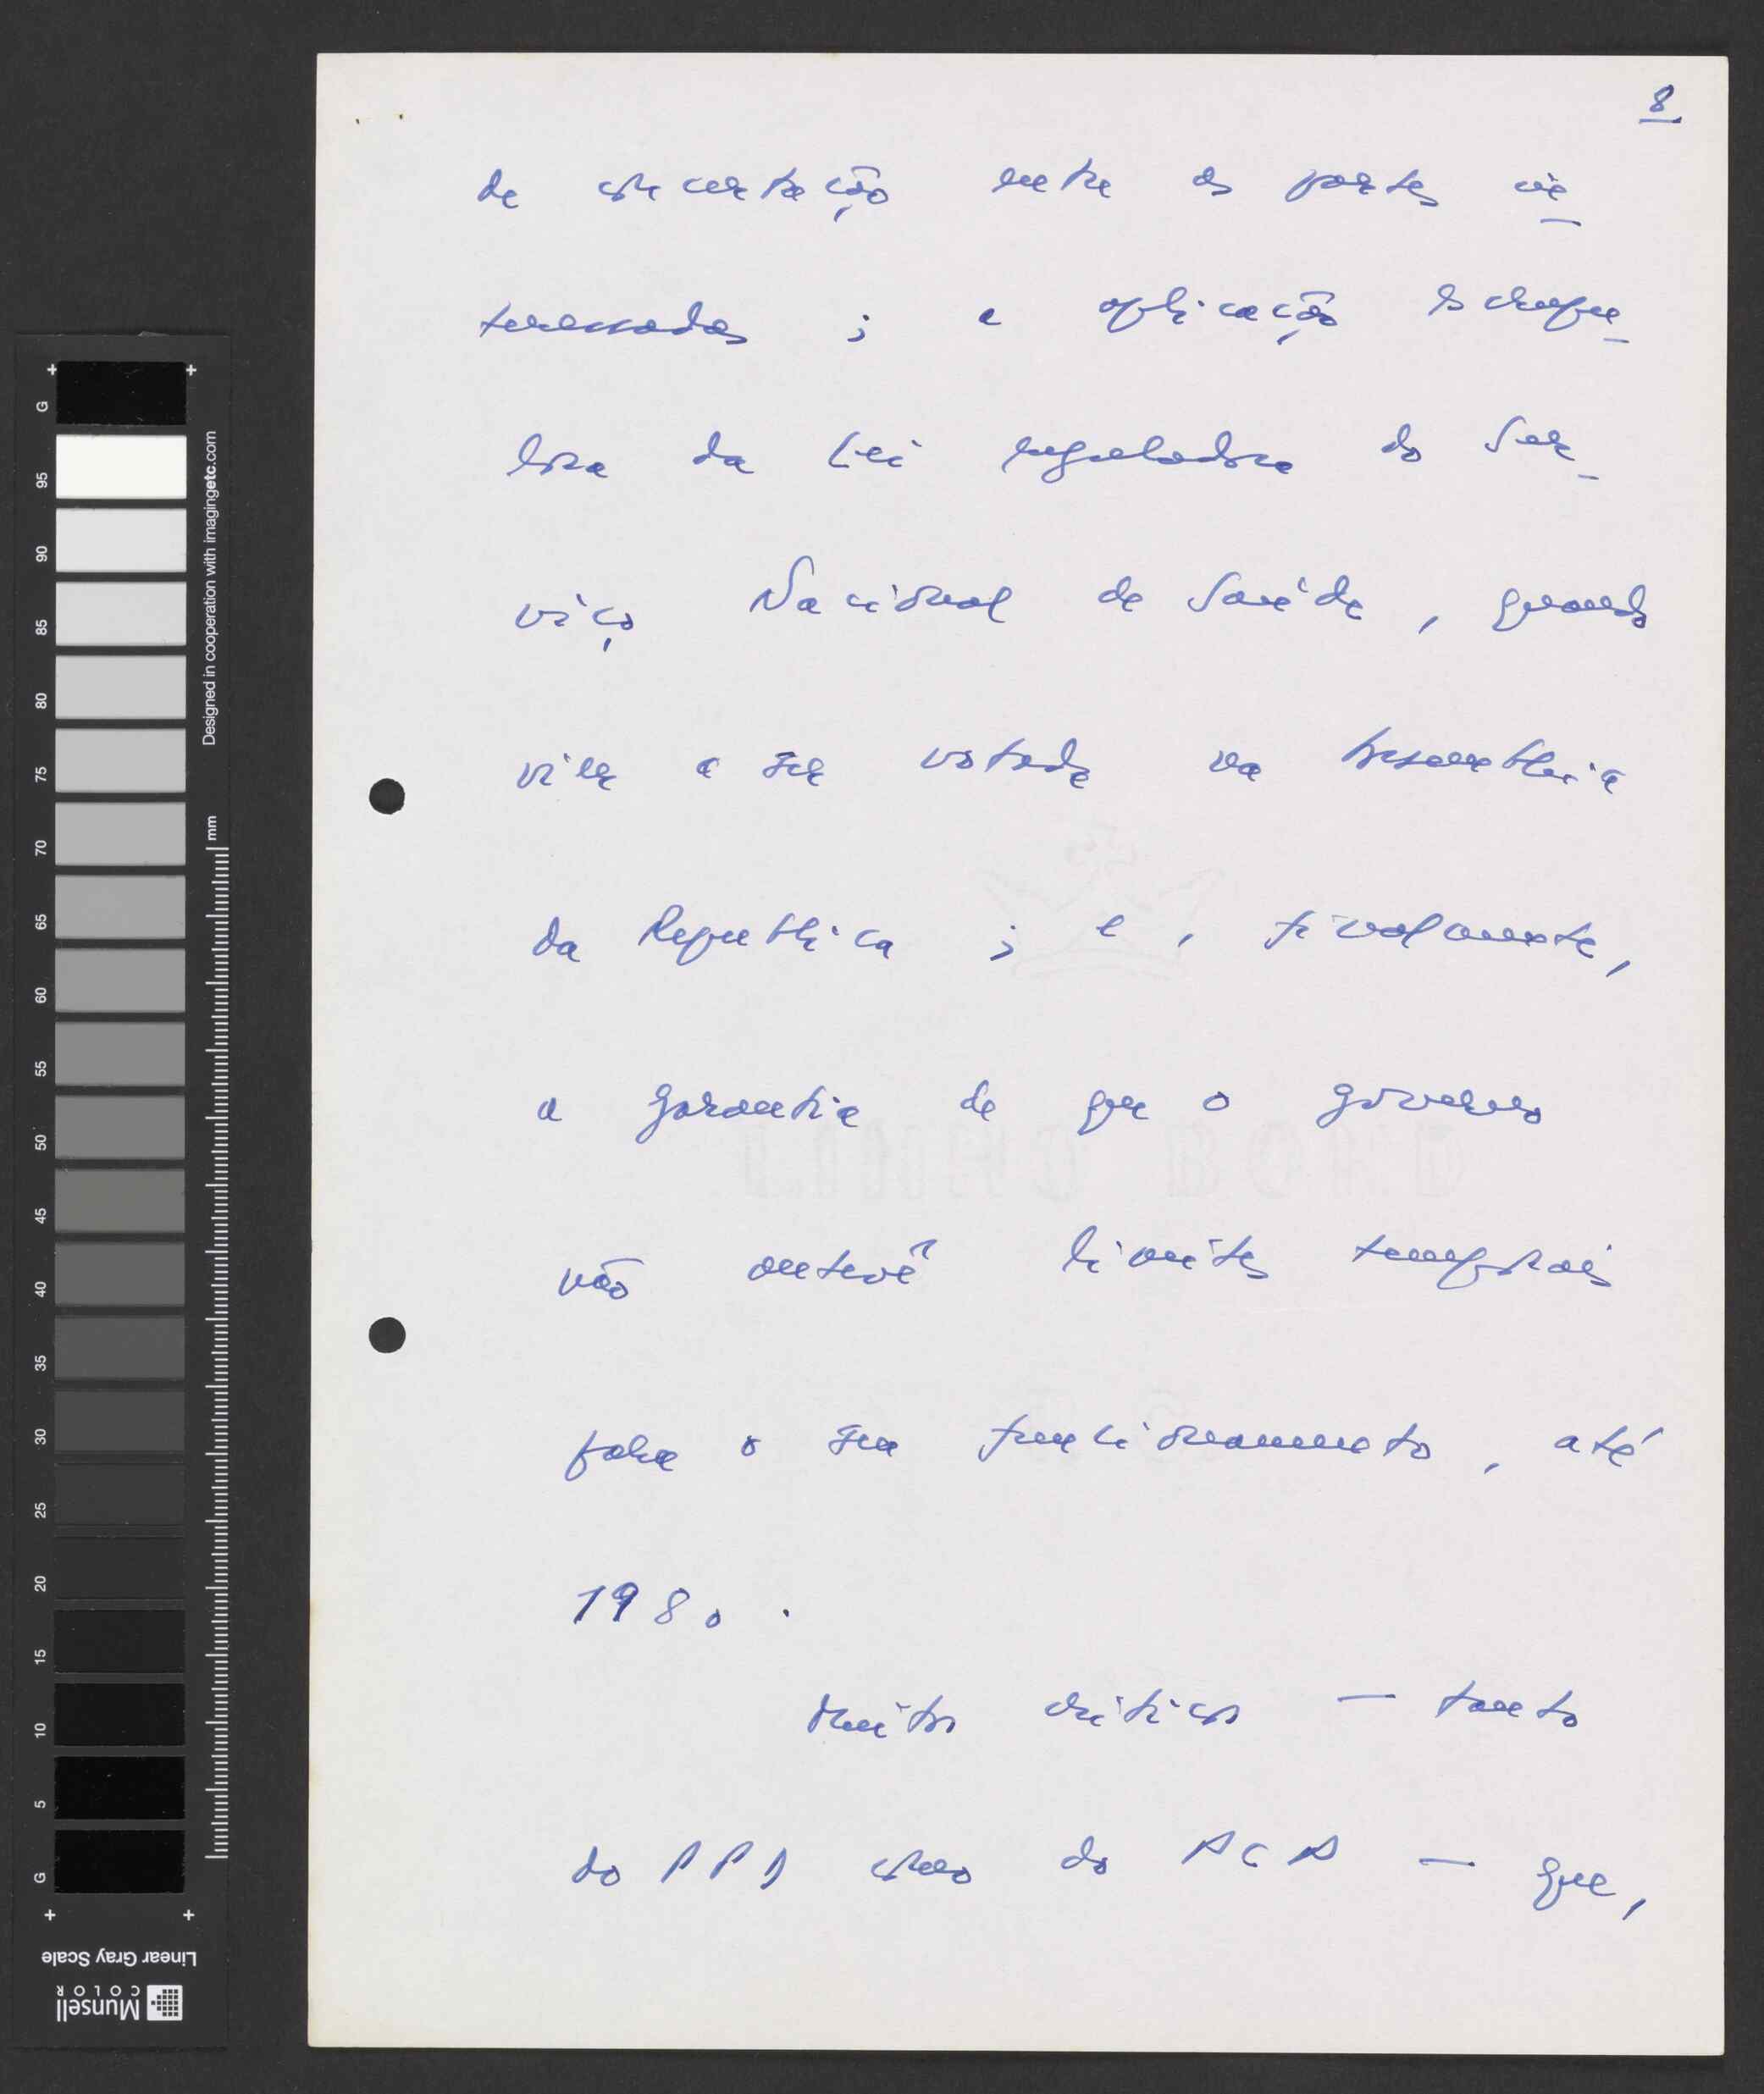 8
de concertação entre as partes in_
teressadas ; a aplicação escrupu_
losa da Lei reguladora do Ser_
viço Nacional de Saúde , quando
vier a ser votada na Assembleia
da Republica ; e , finalmente,
a garantia de que o governo
não antevê limites temporais
para o seu funcionamento , até
1980 .
Muitos críticos — tanto
do PPD como do PCP — que,
Designed in cooperation with imagingetc.com
mm
G
95
90
85
80
75
70
65
60
55
50
45
40
35
30
25
20
15
10
5
G
Linear Gray Scale
Munsell
COLOR